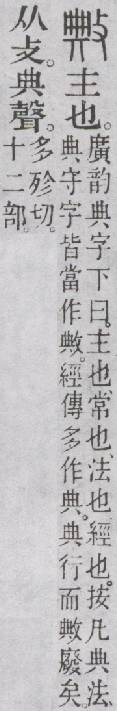 敟主也。廣韵典字下曰。主也、常也、法也、經也。按凡典法、
典守字皆當作敟。經傳多作典。典行而敟廢矣。
从攴。典聲。多殄切。
十二部。